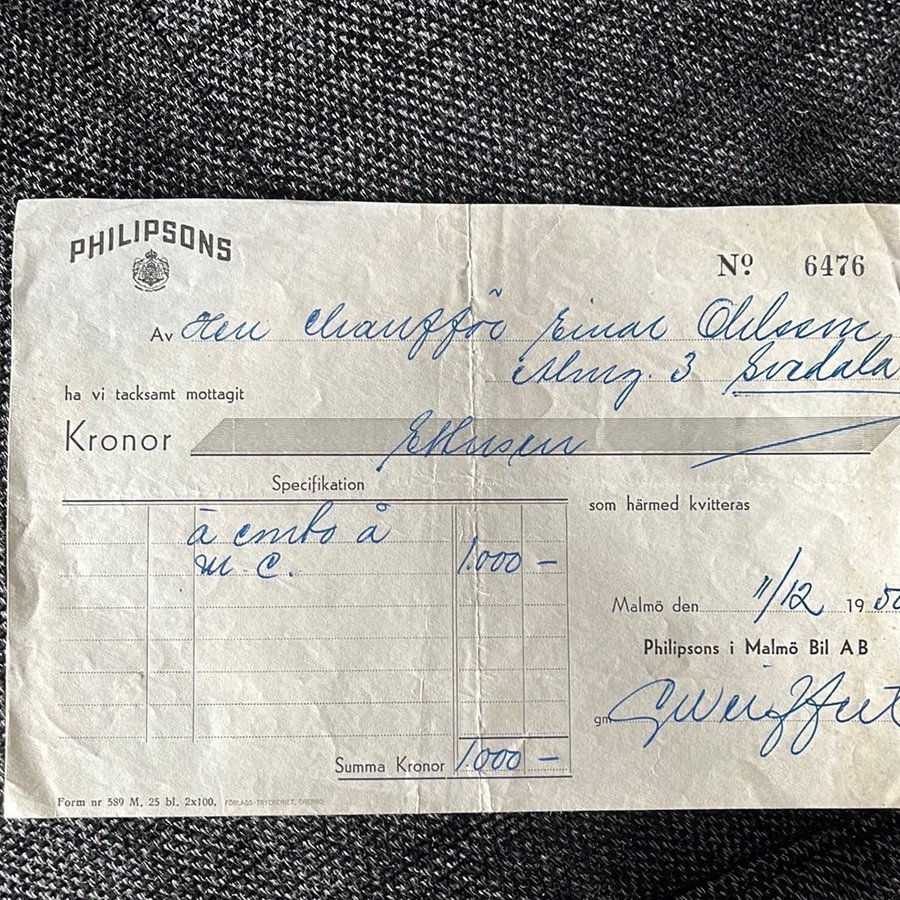 PHILIPSONS
Nº 6476
Av Herr Chaufför Einar Ohlsson
3 Svedala
ha vi tacksamt mottagit
Kronor Ettusen
Specifikation
som härmed kvitteras
à conto å
M. C. 1.000 –
Malmö den 11/12 1950
Philipsons i Malmö Bil AB
gm
Summa Kronor 1.000 –
Form nr 589 M. 25 bl. 2x100. FÖRLAGS-TRYCKERIET, ÖREBRO